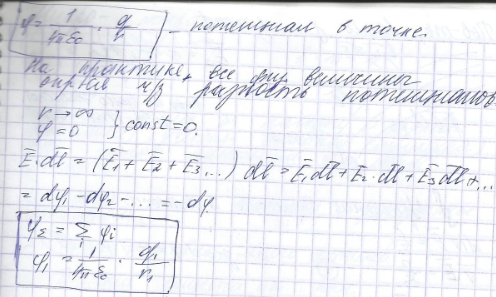 φ = 1/4πε₀ · q/r - потенциал в точке.
На практике, все физ величины
опред ч/з разность потенциалов
r → ∞
φ = 0 } const = 0.
Ē·dl̄ = (Ē₁ + Ē₂ + Ē₃...) dl̄ = Ē₁dl̄ + Ē₂·dl̄ + Ē₃dl̄ + ...
= dφ₁ - dφ₂ - ... = -dφ
φΣ = Σᵢ φi
φ₁ = 1/4πε₀ · q₁/r₁